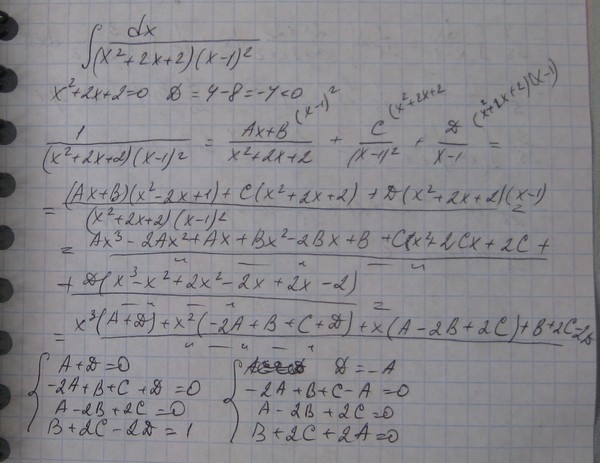 ∫ dx / ((x²+2x+2)(x-1)²)
x²+2x+2=0 D=4-8=-4<0
1 / ((x²+2x+2)(x-1)²) = (Ax+B) / (x²+2x+2) (x-1)² + C / (x-1)² (x²+2x+2 + D / (x-1) (x²+2x+2)(x-1) =
= ((Ax+B)(x²-2x+1) + C(x²+2x+2) + D(x²+2x+2)(x-1)) / ((x²+2x+2)(x-1)²) =
= Ax³-2Ax²+Ax+Bx²-2Bx+B+Cx²+2Cx+2C+ / — " — " — "
+ D(x³-x²+2x²-2x+2x-2) / — " — " — =
= x³(A+D)+x²(-2A+B+C+D)+x(A-2B+2C)+B+2C-2D / " — " — "
{ A+D=0 { D=-A
-2A+B+C+D=0 -2A+B+C-A=0
A-2B+2C=0 A-2B+2C=0
B+2C-2D=1 B+2C+2A=0